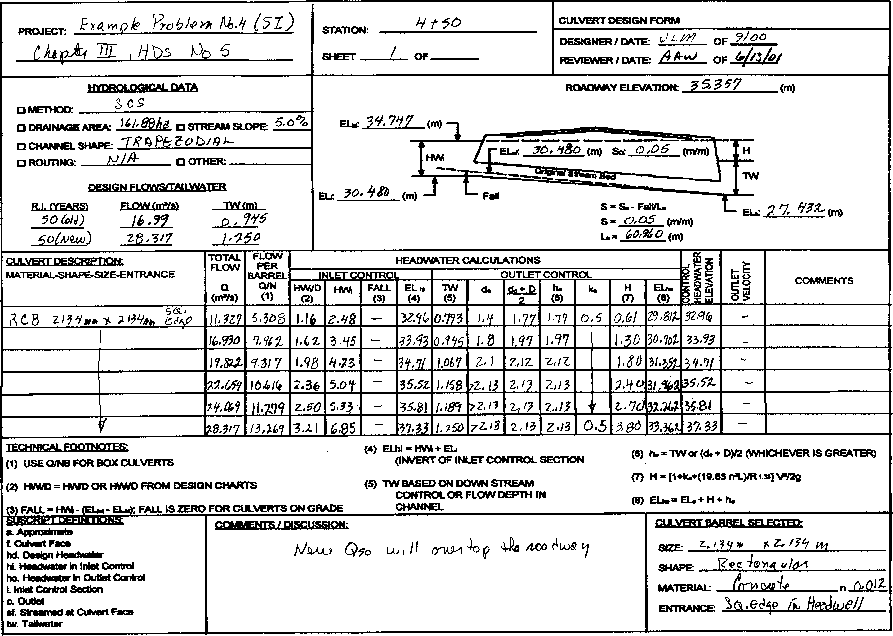 PROJECT: Example Problem No.4 (SI)
Chapter III, HDS No 5
STATION: 4+50
SHEET 1 OF
CULVERT DESIGN FORM
DESIGNER / DATE: JLM OF 9/00
REVIEWER / DATE: AAW OF 6/13/01
HYDROLOGICAL DATA
METHOD: SCS
DRAINAGE AREA: 161.88ha STREAM SLOPE: 5.0%
CHANNEL SHAPE: TRAPEZODIAL
ROUTING: N/A OTHER:
DESIGN FLOWS/TAILWATER
R.I. (YEARS) FLOW (m³/s) TW (m)
50 (old) 16.99 0.945
50(New) 28.317 1.250
ROADWAY ELEVATION: 35.357 (m)
34.747 (m)
HWi EL 30.480 (m) So: 0.05 (m/m) H
Original Stream Bed
TW
30.480 (m) Fall
S = So - Fall/La
S = 0.05 (m/m)
La = 60.960 (m)
ELo: 27.432 (m)
CULVERT DESCRIPTION:
MATERIAL-SHAPE-SIZE-ENTRANCE
TOTAL FLOW Q (m³/s)
FLOW PER BARREL Q/N (1)
HEADWATER CALCULATIONS
INLET CONTROL OUTLET CONTROL
HW/D (2) HWi FALL (3) ELhi (4) TW (5) dc dc + D / 2 ho (6) ke H (7) ELho (8)
CONTROL HEADWATER ELEVATION
OUTLET VELOCITY
COMMENTS
RCB 2134mm x 2134mm SQ. EDGE 11.327 5.308 1.16 2.48 - 32.96 0.793 1.4 1.77 1.77 0.5 0.61 29.812 32.96 -
16.990 7.962 1.62 3.45 - 33.93 0.945 1.8 1.97 1.97 1.30 30.702 33.93 -
19.822 9.317 1.98 4.23 - 34.71 1.067 2.1 2.12 2.12 1.80 31.352 34.71 -
22.654 10.616 2.36 5.04 - 35.52 1.158 >2.13 2.13 2.13 2.40 31.962 35.52 -
24.069 11.279 2.50 5.33 - 35.81 1.189 >2.13 2.13 2.13 2.70 32.262 35.81 -
28.317 13.269 3.21 6.85 - 37.33 1.250 >2.13 2.13 2.13 0.5 3.80 33.362 37.33 -
TECHNICAL FOOTNOTES:
(1) USE Q/NB FOR BOX CULVERTS
(2) HWi/D = HW/D OR HWi/D FROM DESIGN CHARTS
(3) FALL = HWi - (ELhd - ELsf); FALL IS ZERO FOR CULVERTS ON GRADE
(4) ELhi = HWi + ELi
(INVERT OF INLET CONTROL SECTION
(5) TW BASED ON DOWN STREAM
CONTROL OR FLOW DEPTH IN
CHANNEL
(6) ho = TW or (dc + D)/2 (WHICHEVER IS GREATER)
(7) H = [1+ke+(19.63 n²L)/R^1.33] V²/2g
(8) ELho = ELo + H + ho
SUSCRIPT DEFINITIONS:
a. Approximate
f. Culvert Face
hd. Design Headwater
hi. Headwater in Inlet Control
ho. Headwater in Outlet Control
i. Inlet Control Section
o. Outlet
sf. Streamed at Culvert Face
tw. Tailwater
COMMENTS / DISCUSSION:
New Q50 will overtop the roadway
CULVERT BARREL SELECTED:
SIZE: 2.134m x 2.134 m
SHAPE: Rectangular
MATERIAL: Concrete n 0.012
ENTRANCE: Sq. edge in Headwell